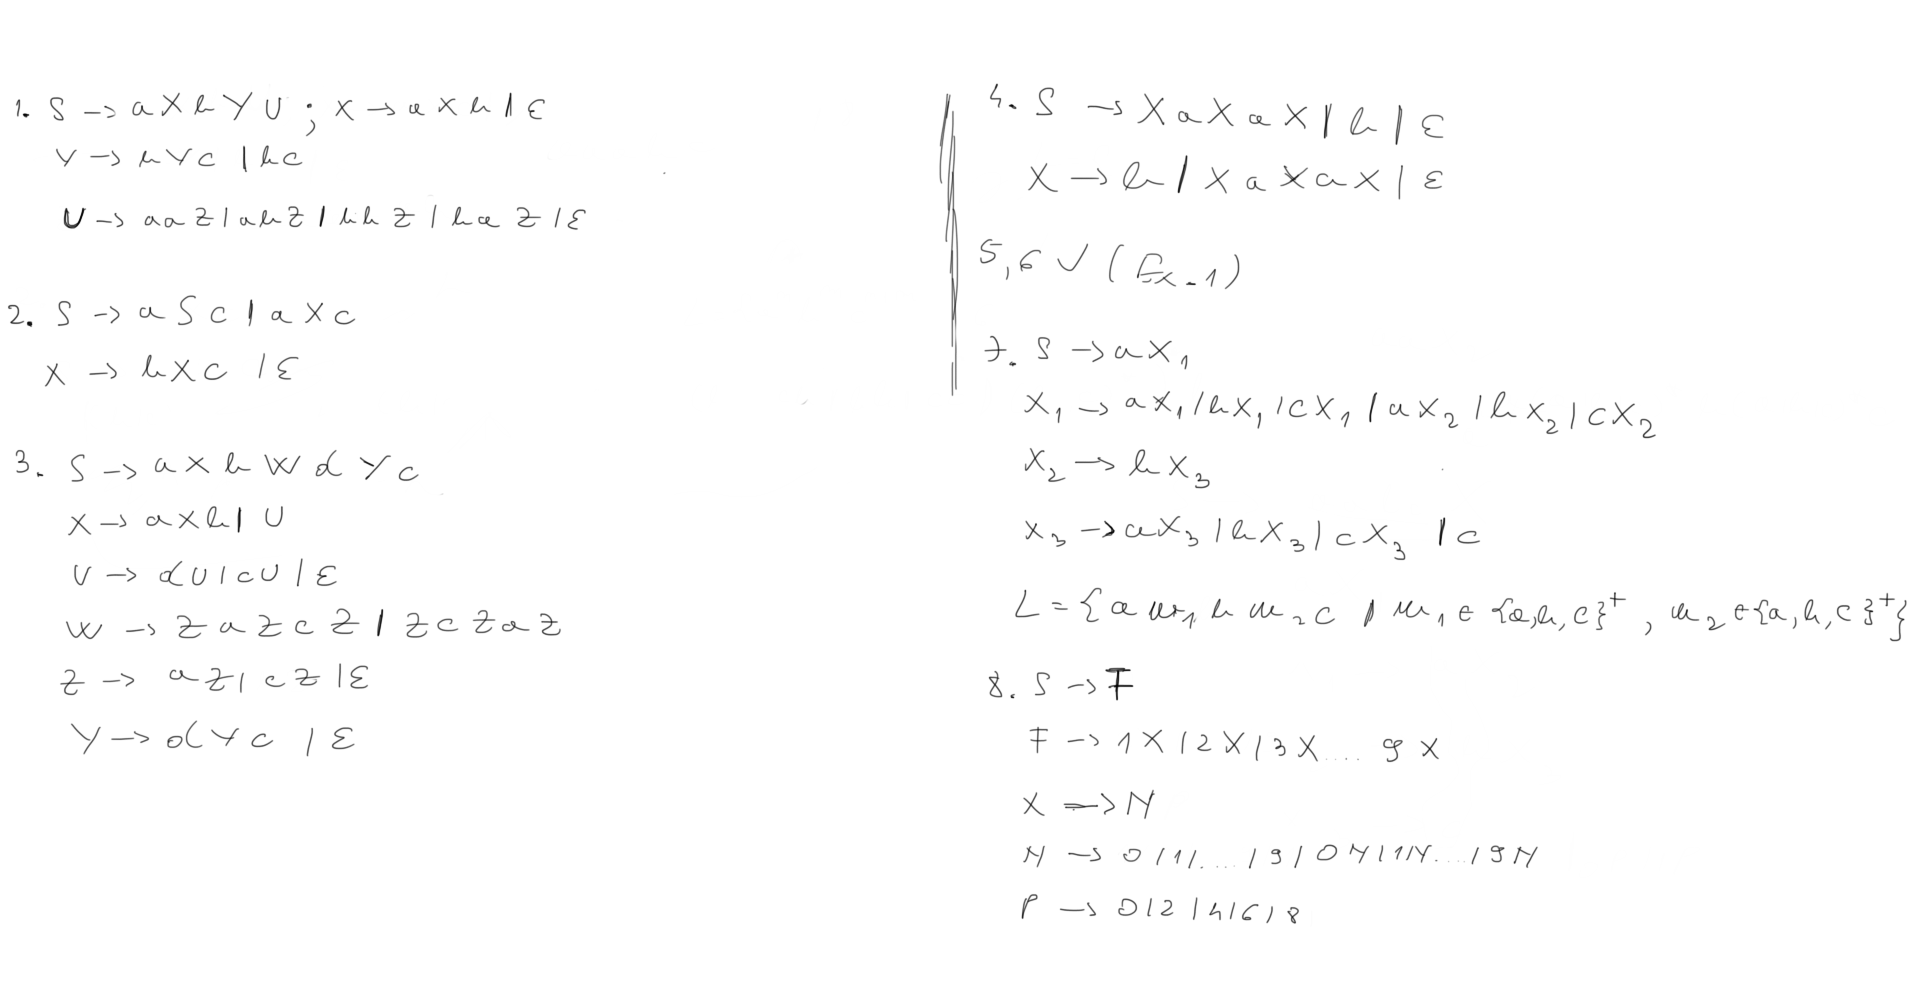 1. S -> aXbYU ; X -> aXb | ε
Y -> bYc | bc
U -> aaZ | abZ | bbZ | baZ | ε
2. S -> aSc | aXc
X -> bXc | ε
3. S -> aXbWdYc
X -> aXb | U
U -> dU | cU | ε
W -> ZaZcZ | ZcZaZ
Z -> aZ | cZ | ε
Y -> dYc | ε
4. S -> XaXaX | b | ε
X -> b | XaXaX | ε
5,6 ✓ (Ex-1)
7. S -> aX₁
X₁ -> aX₁ | bX₁ | cX₁ | aX₂ | bX₂ | cX₂
X₂ -> bX₃
X₃ -> aX₃ | bX₃ | cX₃ | c
L = {a w₁ b w₂ c | w₁ ∈ {a,b,c}⁺, w₂ ∈ {a,b,c}⁺}
8. S -> F
F -> 1X | 2X | 3X .... 9X
X -> N
N -> 0 | 1 | .... | 9 | 0N | 1N ... | 9N
P -> 0 | 2 | 4 | 6 | 8